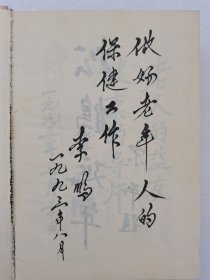 做好老年人的
保健工作
李鹏
一九九三年八月